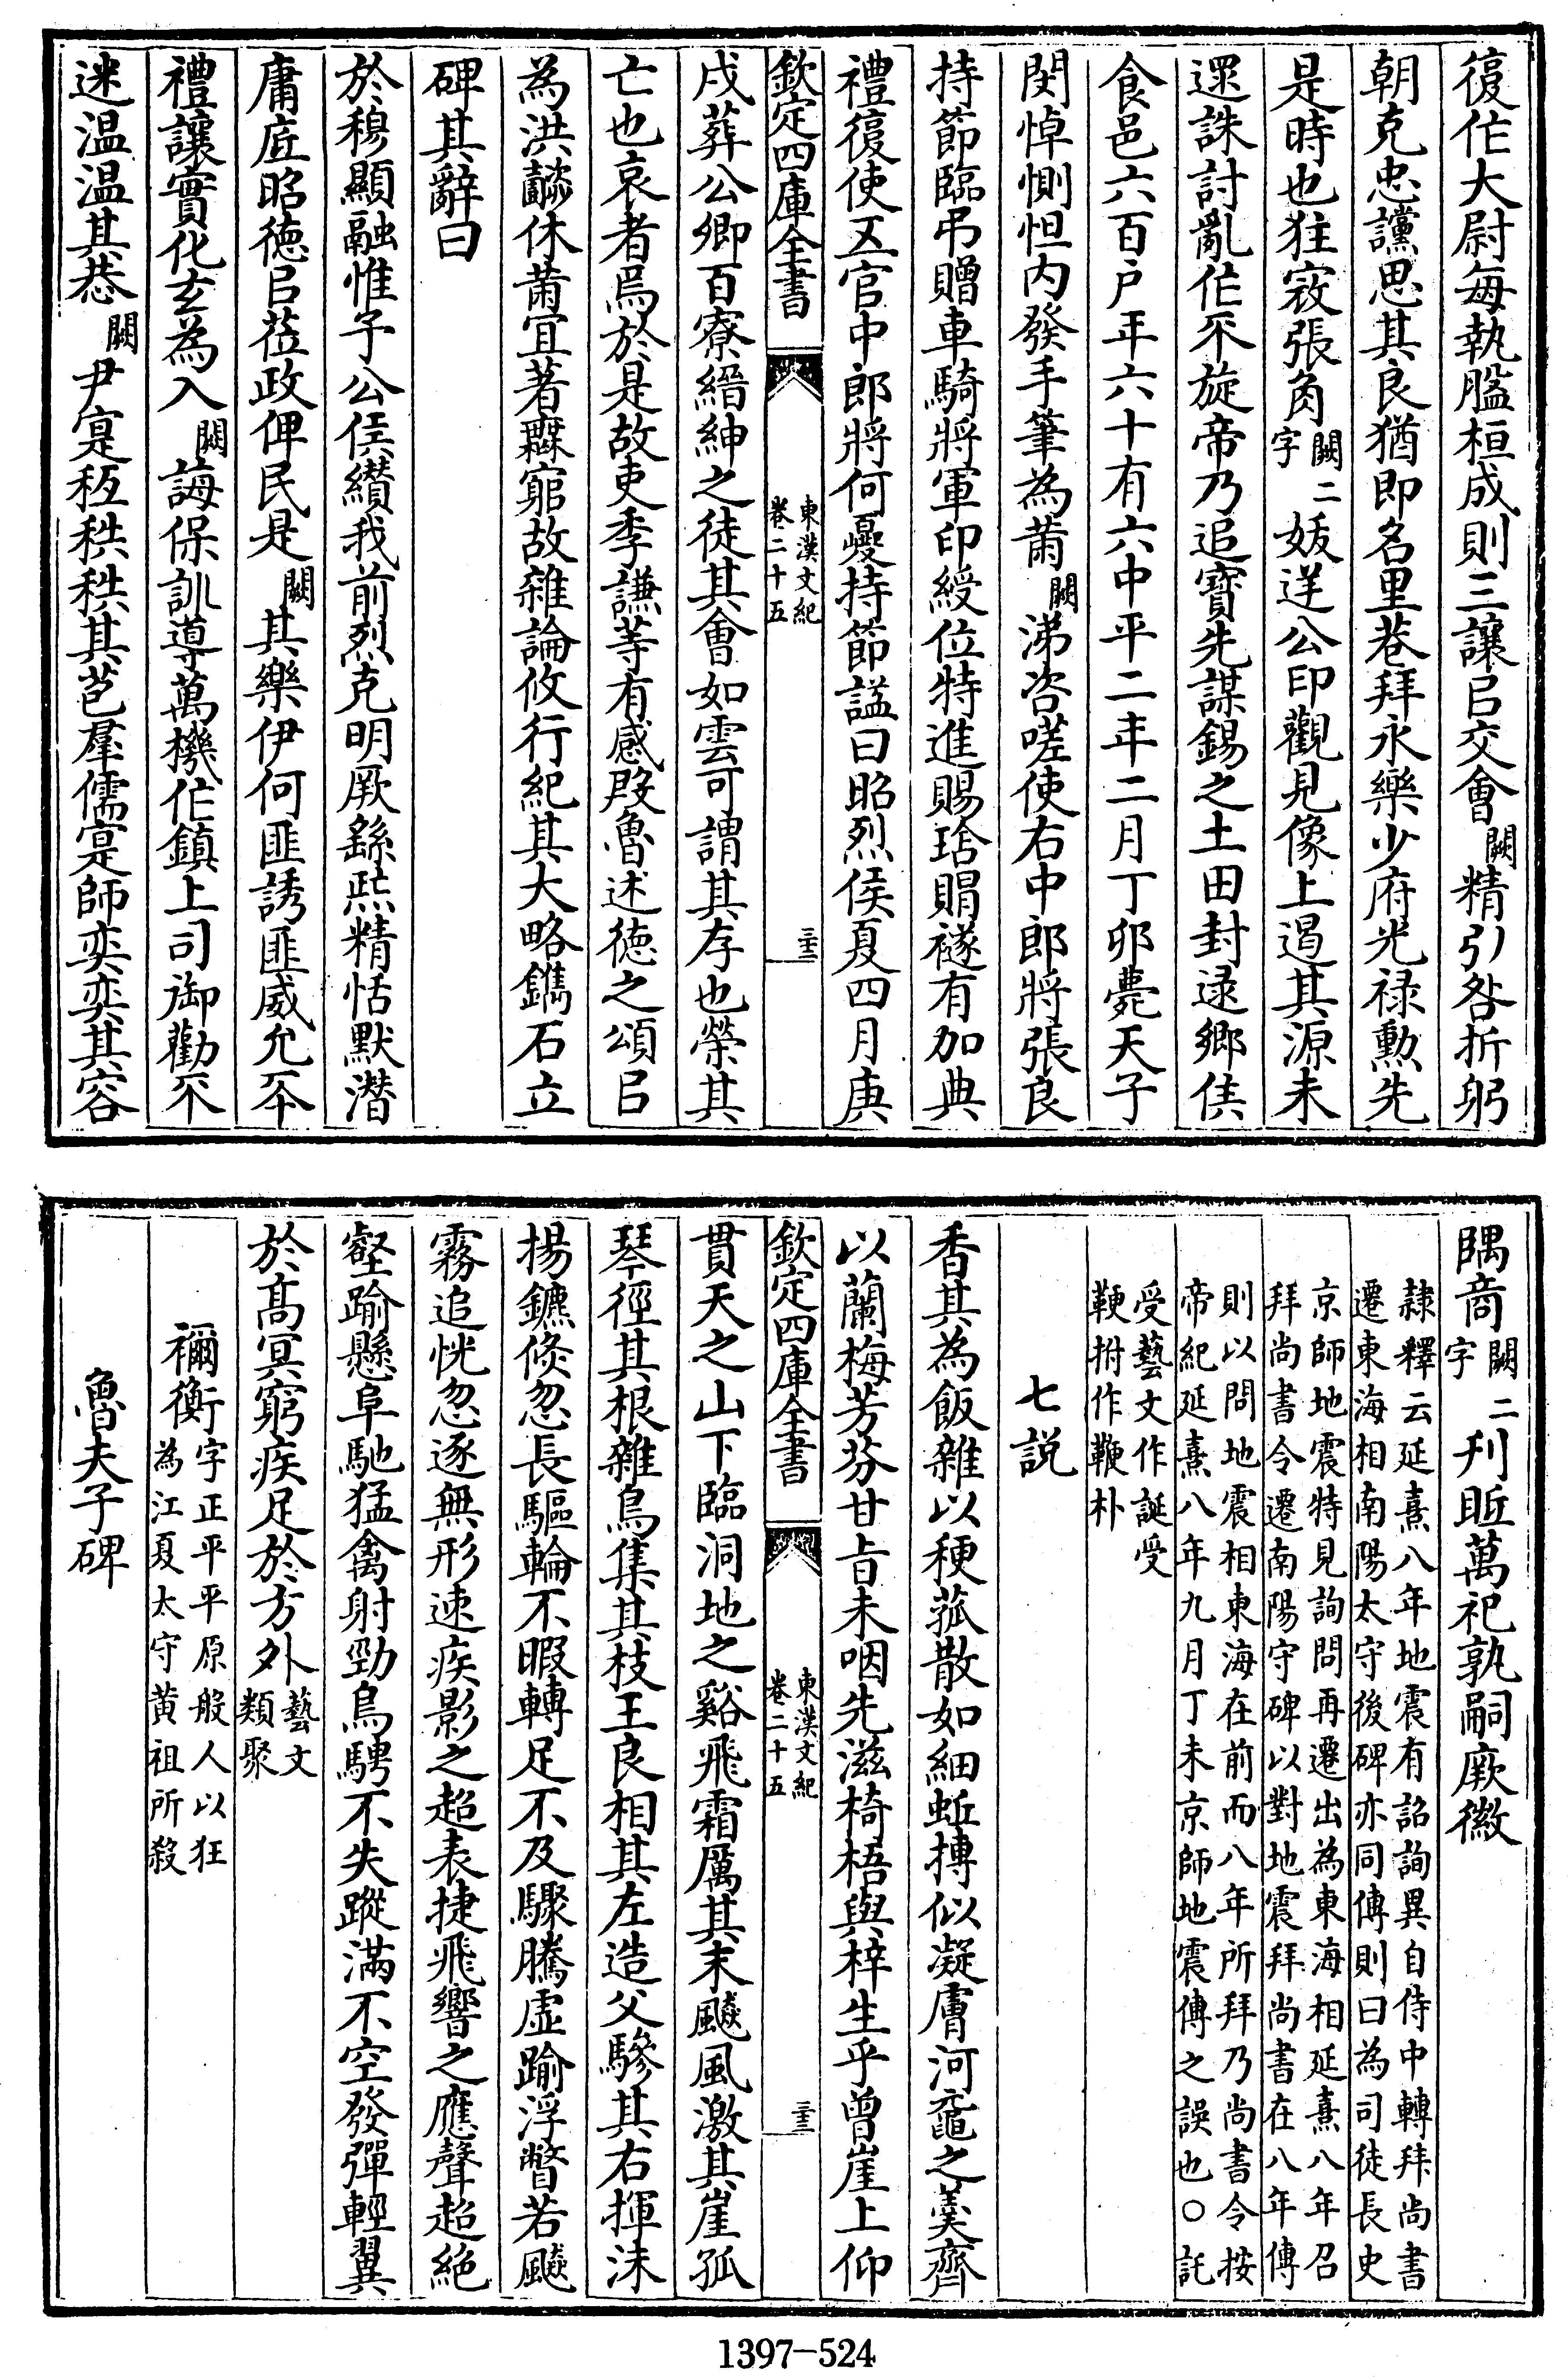 復作大尉每執盤桓成則三讓㠯交會闕精引咎折躬
朝克忠讜思其良猶即名里巷拜永樂少府光祿勲先
是時也狂寇張角闕二字妖逆公印觀見像上遏其源未
還誅討亂作不旋帝乃追寳先謀錫之土田封逯鄉侯
食邑六百户年六十有六中平二年二月丁卯薨天子
閔悼惻怛内發手筆為莤闕涕咨嗟使右中郎將張良
持節臨弔贈車騎將軍印綬位特進賜琀賵襚有加典
禮復使五官中郎將何夔持節諡曰昭烈侯夏四月庚
欽定四庫全書
東漢文紀
卷二十五
三十二
戌葬公卿百寮縉紳之徒其會如雲可謂其存也榮其
亡也哀者焉於是故吏季謙等有感殷魯述徳之頌㠯
為洪懿休莤宜著無窮故雜論攸行紀其大略鐫石立
碑其辭曰
於穆顯融惟子公侯纘我前烈克明厥繇烋精恬默潛
庸底昭徳㠯莅政俾民是闕其樂伊何匪誘匪威允不
禮讓實化玄為入闕誨保訓導萬機作鎮上司御勸不
迷温温其恭闕尹寔秷秩秩其芑羣儒寔師奕奕其容
隅商闕二字刋眂萬祀孰嗣厥徽
隷釋云延熹八年地震有詔詢異自侍中轉拜尚書
遷東海相南陽太守後碑亦同傳則曰為司徒長史
京師地震特見詢問再遷出為東海相延熹八年召
拜尚書令遷南陽守碑以對地震拜尚書在八年傳
則以問地震相東海在前而八年所拜乃尚書令按
帝紀延熹八年九月丁未京師地震傳之誤也○託
受藝文作誕受
鞕拊作鞭朴
七説
香其為飯雜以稉菰散如細蚯摶似凝膚河黿之羮齊
以蘭梅芳芬甘㫖未咽先滋椅梧與梓生乎曽崖上仰
欽定四庫全書
東漢文紀
卷二十五
三十三
貫天之山下臨洞地之谿飛霜厲其末飈風激其崖孤
琴徑其根雜鳥集其枝王良相其左造父驂其右揮沬
揚鑣倐忽長驅輪不暇轉足不及驟騰虛踰浮瞥若飈
霧追恍忽逐無形速疾影之超表捷飛響之應聲超絶
壑踰懸阜馳猛禽射勁鳥騁不失蹤滿不空發彈輕翼
於髙冥窮疾足於方外藝文類聚
禰衡字正平平原般人以狂
為江夏太守黄祖所殺
魯夫子碑
1397-524